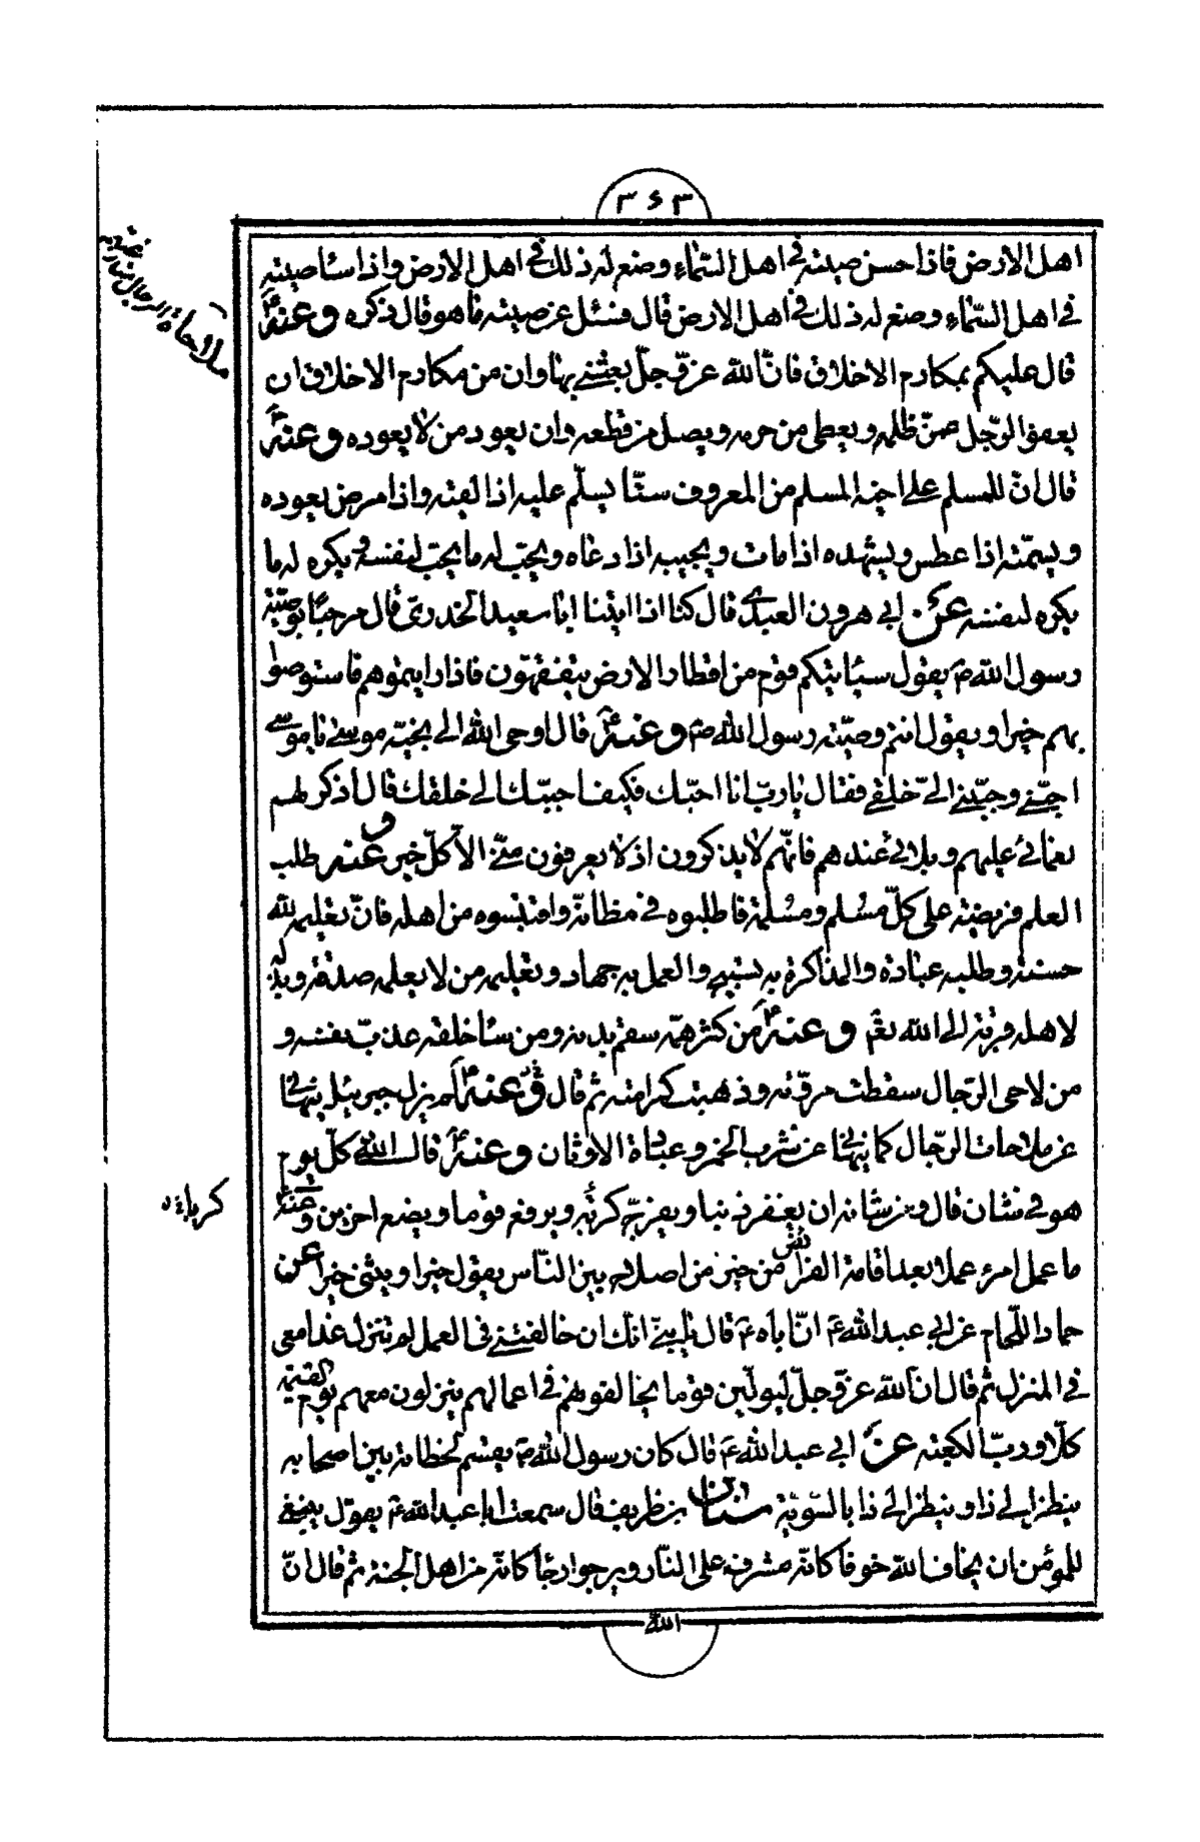 ٣٤٣
اهل الارض فاذا حسن صيته في اهل السّماء وضع له ذلك في اهل الارض واذا ساء صيته
في اهل السّماء وضع له ذلك في اهل الارض قال فسئل عن صيته ما هو قال ذكره وعنه ع
قال عليكم بمكارم الاخلاق فانّ الله عزّ وجلّ بعثني بها وان من مكارم الاخلاق ان
يعفو الرّجل عمّن ظلمه ويعطي من حرمه ويصل من قطعه وان يعود من لا يعوده وعنه ع
قال انّ للمسلم على اخيه المسلم من المعروف ستّا يسلّم عليه اذا لقيه واذا مرض يعوده
ويسمّته اذا عطس ويشهده اذا مات ويجيبه اذا دعاه ويحبّ له ما يحبّ لنفسه ويكره له ما
يكره لنفسه عن ابي هرون العبدي قال كنا اذا اتينا ابا سعيد الخدريّ قال مرحبًا بوصيّة
رسول الله ص يقول سياتيكم قوم من اقطار الارض يتفقهّون فاذا رايتموهم فاستوصوا
بهم خيرا ويقول انتم وصيّة رسول الله ص وعنه ع قال اوحى الله الى نجيّه موسى يا موسى
احبّني وحبّبني الىّ خلقي فقال يا ربّ انا احبّك فكيف احببك الى خلقك قال اذكر لهم
نعمائي عليهم وبلائي عندهم فانّهم لا يذكرون اذ لا يعرفون منّي الاّ كلّ خير وعنه طلب
العلم فريضة على كلّ مسلم ومسلمة فاطلبوه في مظانّه واقتبسوه من اهله فانّ تعليمه لله
حسنة وطلبه عبادة والمذاكرة به تسبيح والعمل به جهاد وتعليمه من لا يعلمه صدقة وبذله
لاهله قربة الى الله تعٰم وعنه ع من كثر همّه سقم بدنه ومن ساء خلقه عذب نفسه و
من لاحى الرّجال سقطت مروّته وذهبت كرامته ثم قال ص وعنه ع لم يزل جبرئيل ينهاني
عن ملاحات الرّجال كما ينهاني عن شرب الخمر وعبادة الاوثان وعنه ع قال الله كلّ يوم
هو في شان قال ومن شانه ان يغفر ذنبا ويفرّج كربة ويرفع قوما ويضع اخرين وعنه ع
ما عمل امرء عملا بعد اقامة الفرائض من خير من اصلاح بين النّاس يقول خيرا ويثنى خيرا عن
حماد اللّحام عن ابي عبد الله ع انّ اباه ع قال يا بنيّ انك ان خالفتني في العمل لم تنزل غدا معي
في المنزل ثم قال ان الله عزّ وجلّ ليولّين قوما يخالفونهم في اعمالهم ينزلون معهم يوم القيمة
كلّا وربّ الكعبة عن ابي عبد الله ع قال كان رسول الله ص يقسم لحظاته بين اصحابه
ينظر الى ذا وينظر الى ذا بالسّويّة سنان بن ظريف قال سمعت ابا عبد الله ع يقول ينبغي
للمؤمن ان يخاف الله خوفا كانّه مشرف على النّار ويرجوا رجاء كانّه من اهل الجنة ثم قال انّ
الله
ملاحاة الرجال
كربة